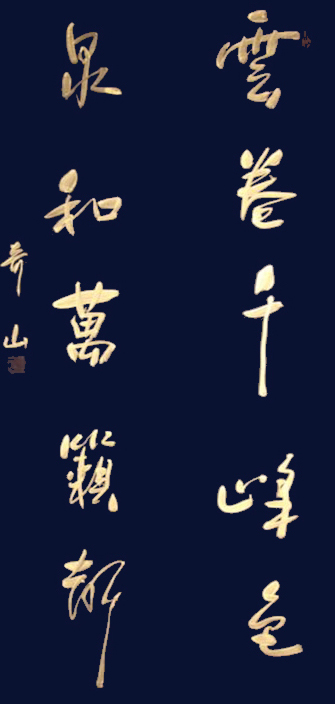 雲卷千峰色
泉和萬籟聲
山